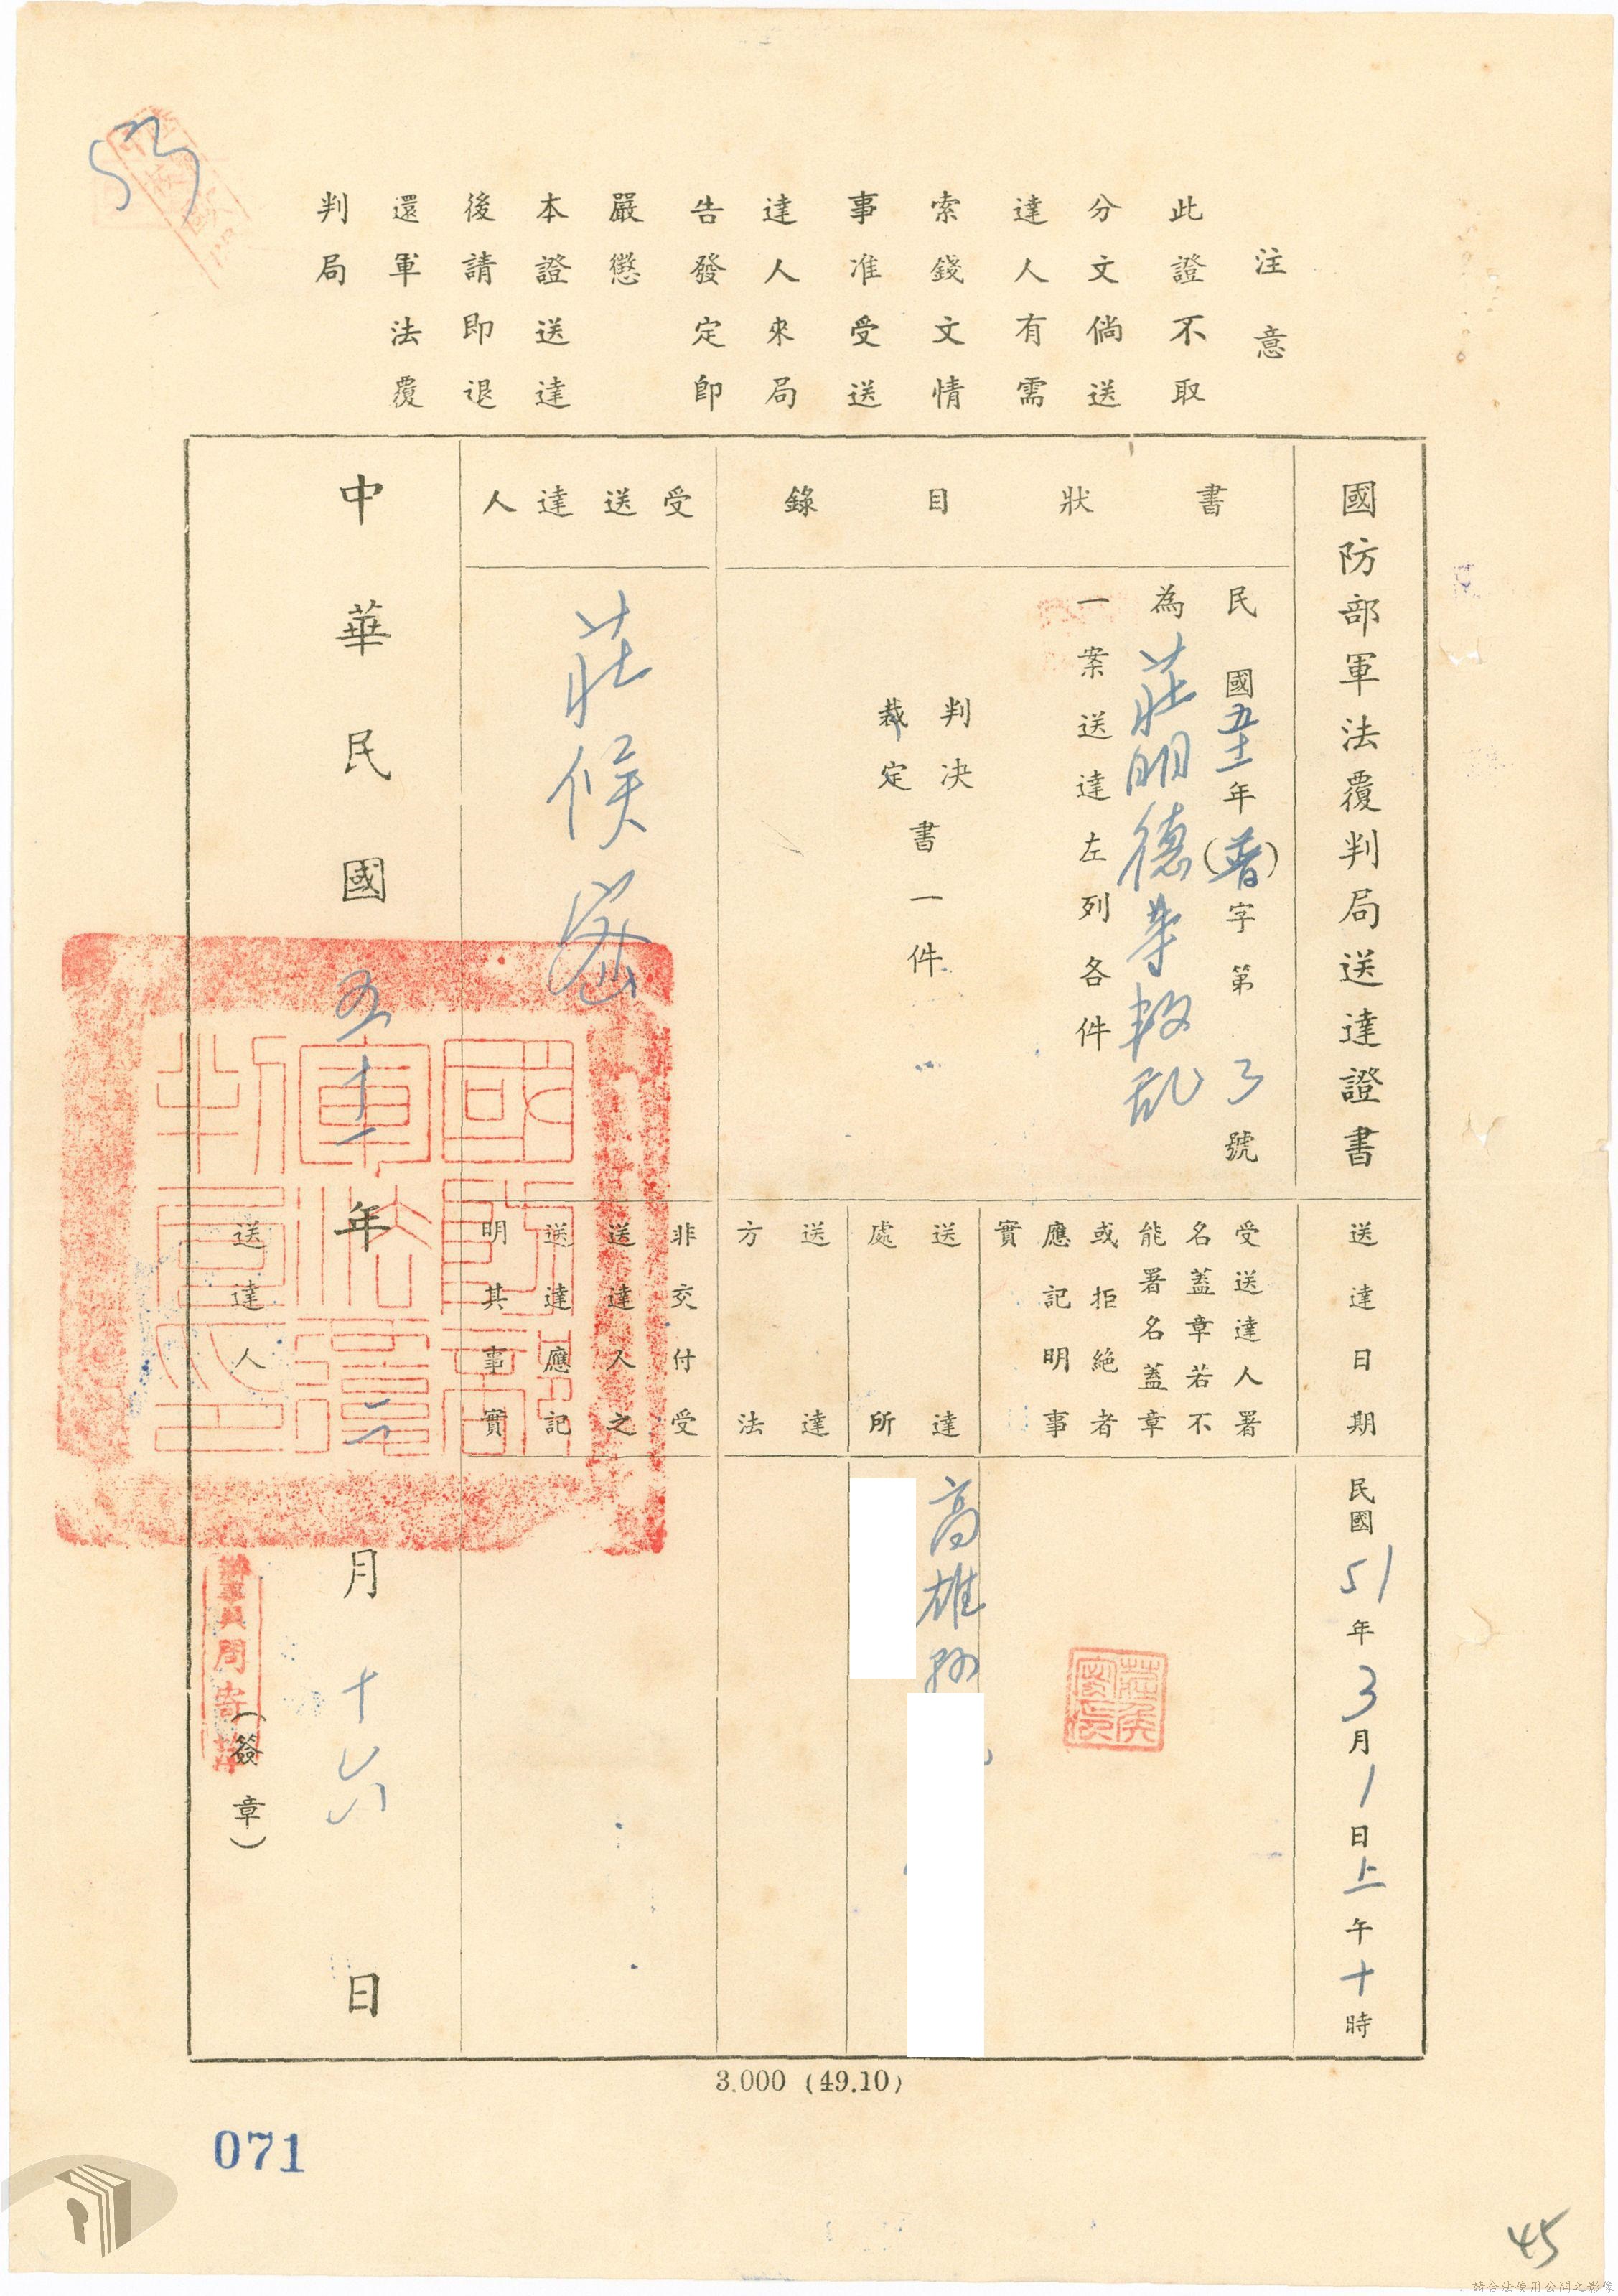 注意
此證不取
分文倘送
達人有需
索錢文情
事准受送
達人來局
告發定即
嚴懲
本證送達
後請即退
還軍法覆
判局
國防部軍法覆判局送達證書
書狀目錄
民國五十一年(普)字第3號
為莊明德等叛乱
一案送達左列各件
判決
裁定
書一件
受送達人
莊候密
中華民國五十一年二月十六日
送達日期
民國51年3月1日上午十時
受送達人署
名蓋章若不
能署名蓋章
或拒絕者
應記明事
實
送達
處所
高雄縣
送達
方法
非交付受
送達人之
送達應記
明其事實
送達人
(簽章)
國防部軍法覆判局印
辦事員周寄萍
3.000 (49.10)
071
45
請合法使用公開之影像